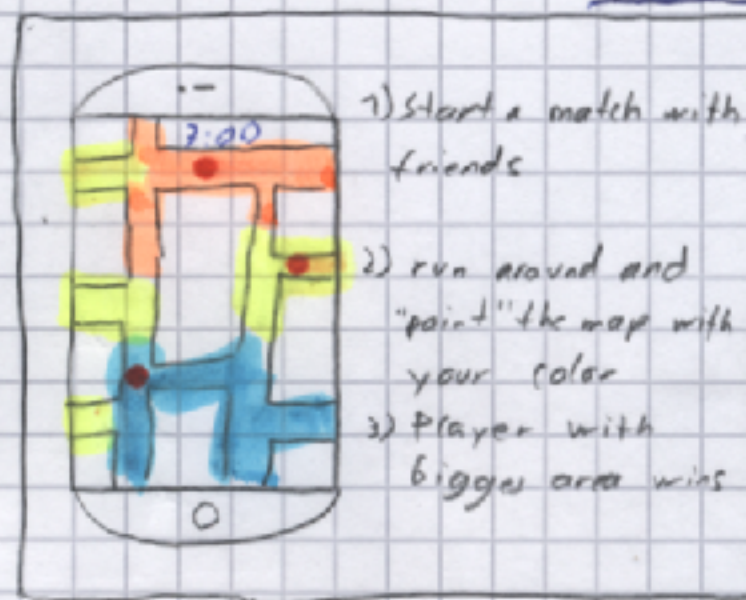 7:00
1) Start a match with
friends
2) run around and
"paint" the map with
your color
3) Player with
bigges area wins